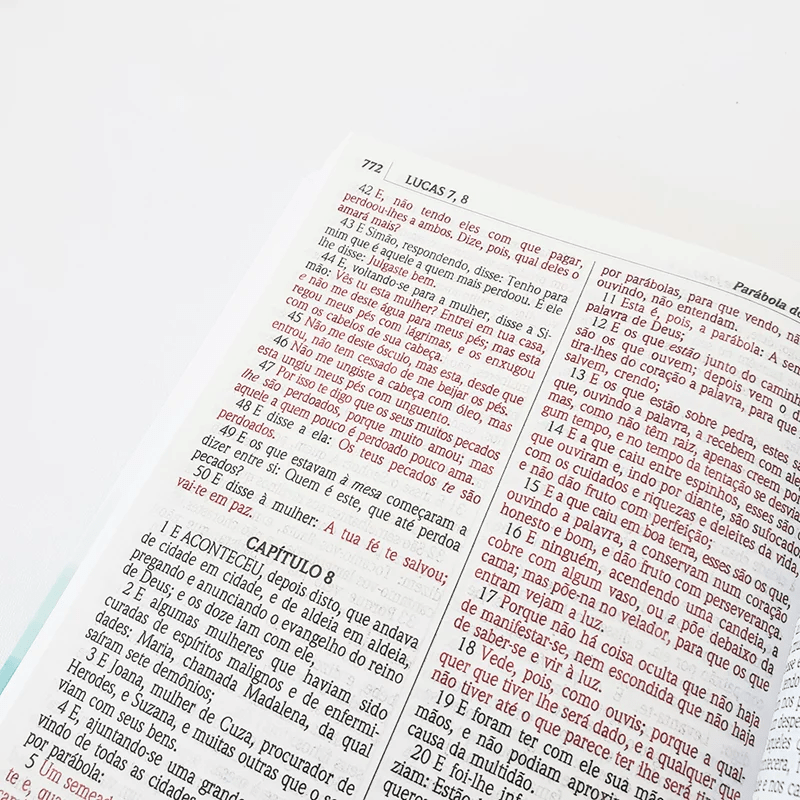 772 LUCAS 7, 8
42 E, não tendo eles com que pagar,
perdoou-lhes a ambos. Dize, pois, qual deles o
amará mais?
43 E Simão, respondendo, disse: Tenho para
mim que é aquele a quem mais perdoou. E ele
lhe disse: Julgaste bem.
44 E, voltando-se para a mulher, disse a Si-
mão: Vês tu esta mulher? Entrei em tua casa,
e não me deste água para meus pés; mas esta
regou meus pés com lágrimas, e os enxugou
com os cabelos de sua cabeça.
45 Não me deste ósculo, mas esta, desde que
entrou, não tem cessado de me beijar os pés.
46 Não me ungiste a cabeça com óleo, mas
esta ungiu meus pés com unguento.
47 Por isso te digo que os seus muitos pecados
lhe são perdoados, porque muito amou; mas
aquele a quem pouco é perdoado pouco ama.
48 E disse a ela: Os teus pecados te são
perdoados.
49 E os que estavam à mesa começaram a
dizer entre si: Quem é este, que até perdoa
pecados?
50 E disse à mulher: A tua fé te salvou;
vai-te em paz.
CAPÍTULO 8
1 E ACONTECEU, depois disto, que andava
de cidade em cidade, e de aldeia em aldeia,
pregando e anunciando o evangelho do reino
de Deus; e os doze iam com ele,
2 E algumas mulheres que haviam sido
curadas de espíritos malignos e de enfermi-
dades: Maria, chamada Madalena, da qual
saíram sete demônios;
3 E Joana, mulher de Cuza, procurador de
Herodes, e Suzana, e muitas outras que o
viam com seus bens.
4 E, ajuntando-se uma grande
vindo de todas as cidades
por parábola:
5 Um
te e,
Parábola
por parábolas, para que vendo,
ouvindo, não entendam.
11 Esta é, pois, a parábola: A
palavra de Deus;
12 E os que estão junto do
são os que ouvem; depois vem o
tira-lhes do coração a palavra, para que
salvem, crendo;
13 E os que estão sobre pedra, estes
que, ouvindo a palavra, a recebem com
mas, como não têm raiz, apenas creem por
gum tempo, e no tempo da tentação se
14 E a que caiu entre espinhos, esses são
que ouviram e, indo por diante, são
com os cuidados e riquezas e deleites da vida,
e não dão fruto com perfeição;
15 E a que caiu em boa terra, esses são os que,
ouvindo a palavra, a conservam num coração
honesto e bom, e dão fruto com perseverança.
16 E ninguém, acendendo uma candeia, a
cobre com algum vaso, ou a põe debaixo da
cama; mas põe-na no velador, para que os que
entram vejam a luz.
17 Porque não há coisa oculta que não haja
de manifestar-se, nem escondida que não haja
de saber-se e vir à luz.
18 Vede, pois, como ouvis; porque a qual-
quer que tiver lhe será dado, e a qualquer que
não tiver até o que parece ter lhe será
19 E foram ter com ele sua mãe
mãos, e não podiam
causa da multidão.
20 E foi-lhe
ziam: Estão